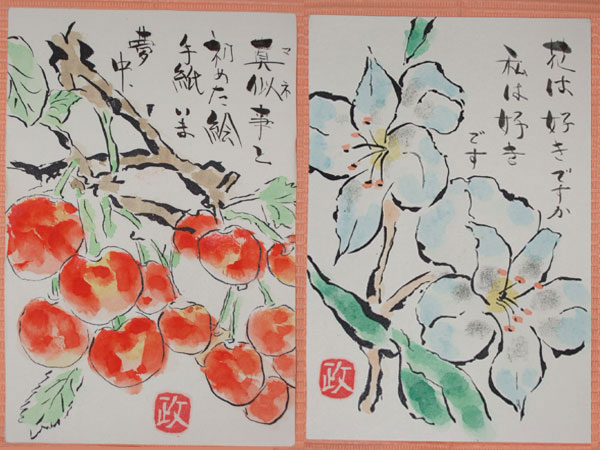 マネ
真似事と
初めた絵
手紙いま
夢
中、
政
花は好きですか
私は好き
です
政